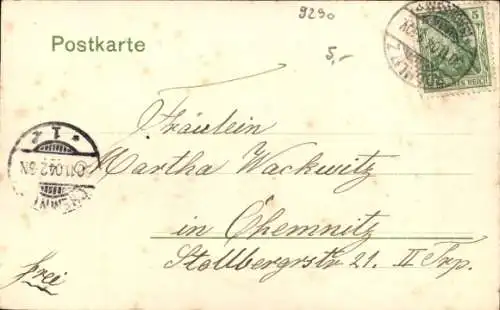 9290
5,-
Postkarte
5
Fräulein
Martha Wackwitz
in Chemnitz
Stollbergrstr 21. II Trp.
frei
* 1 z
CHEMNITZ